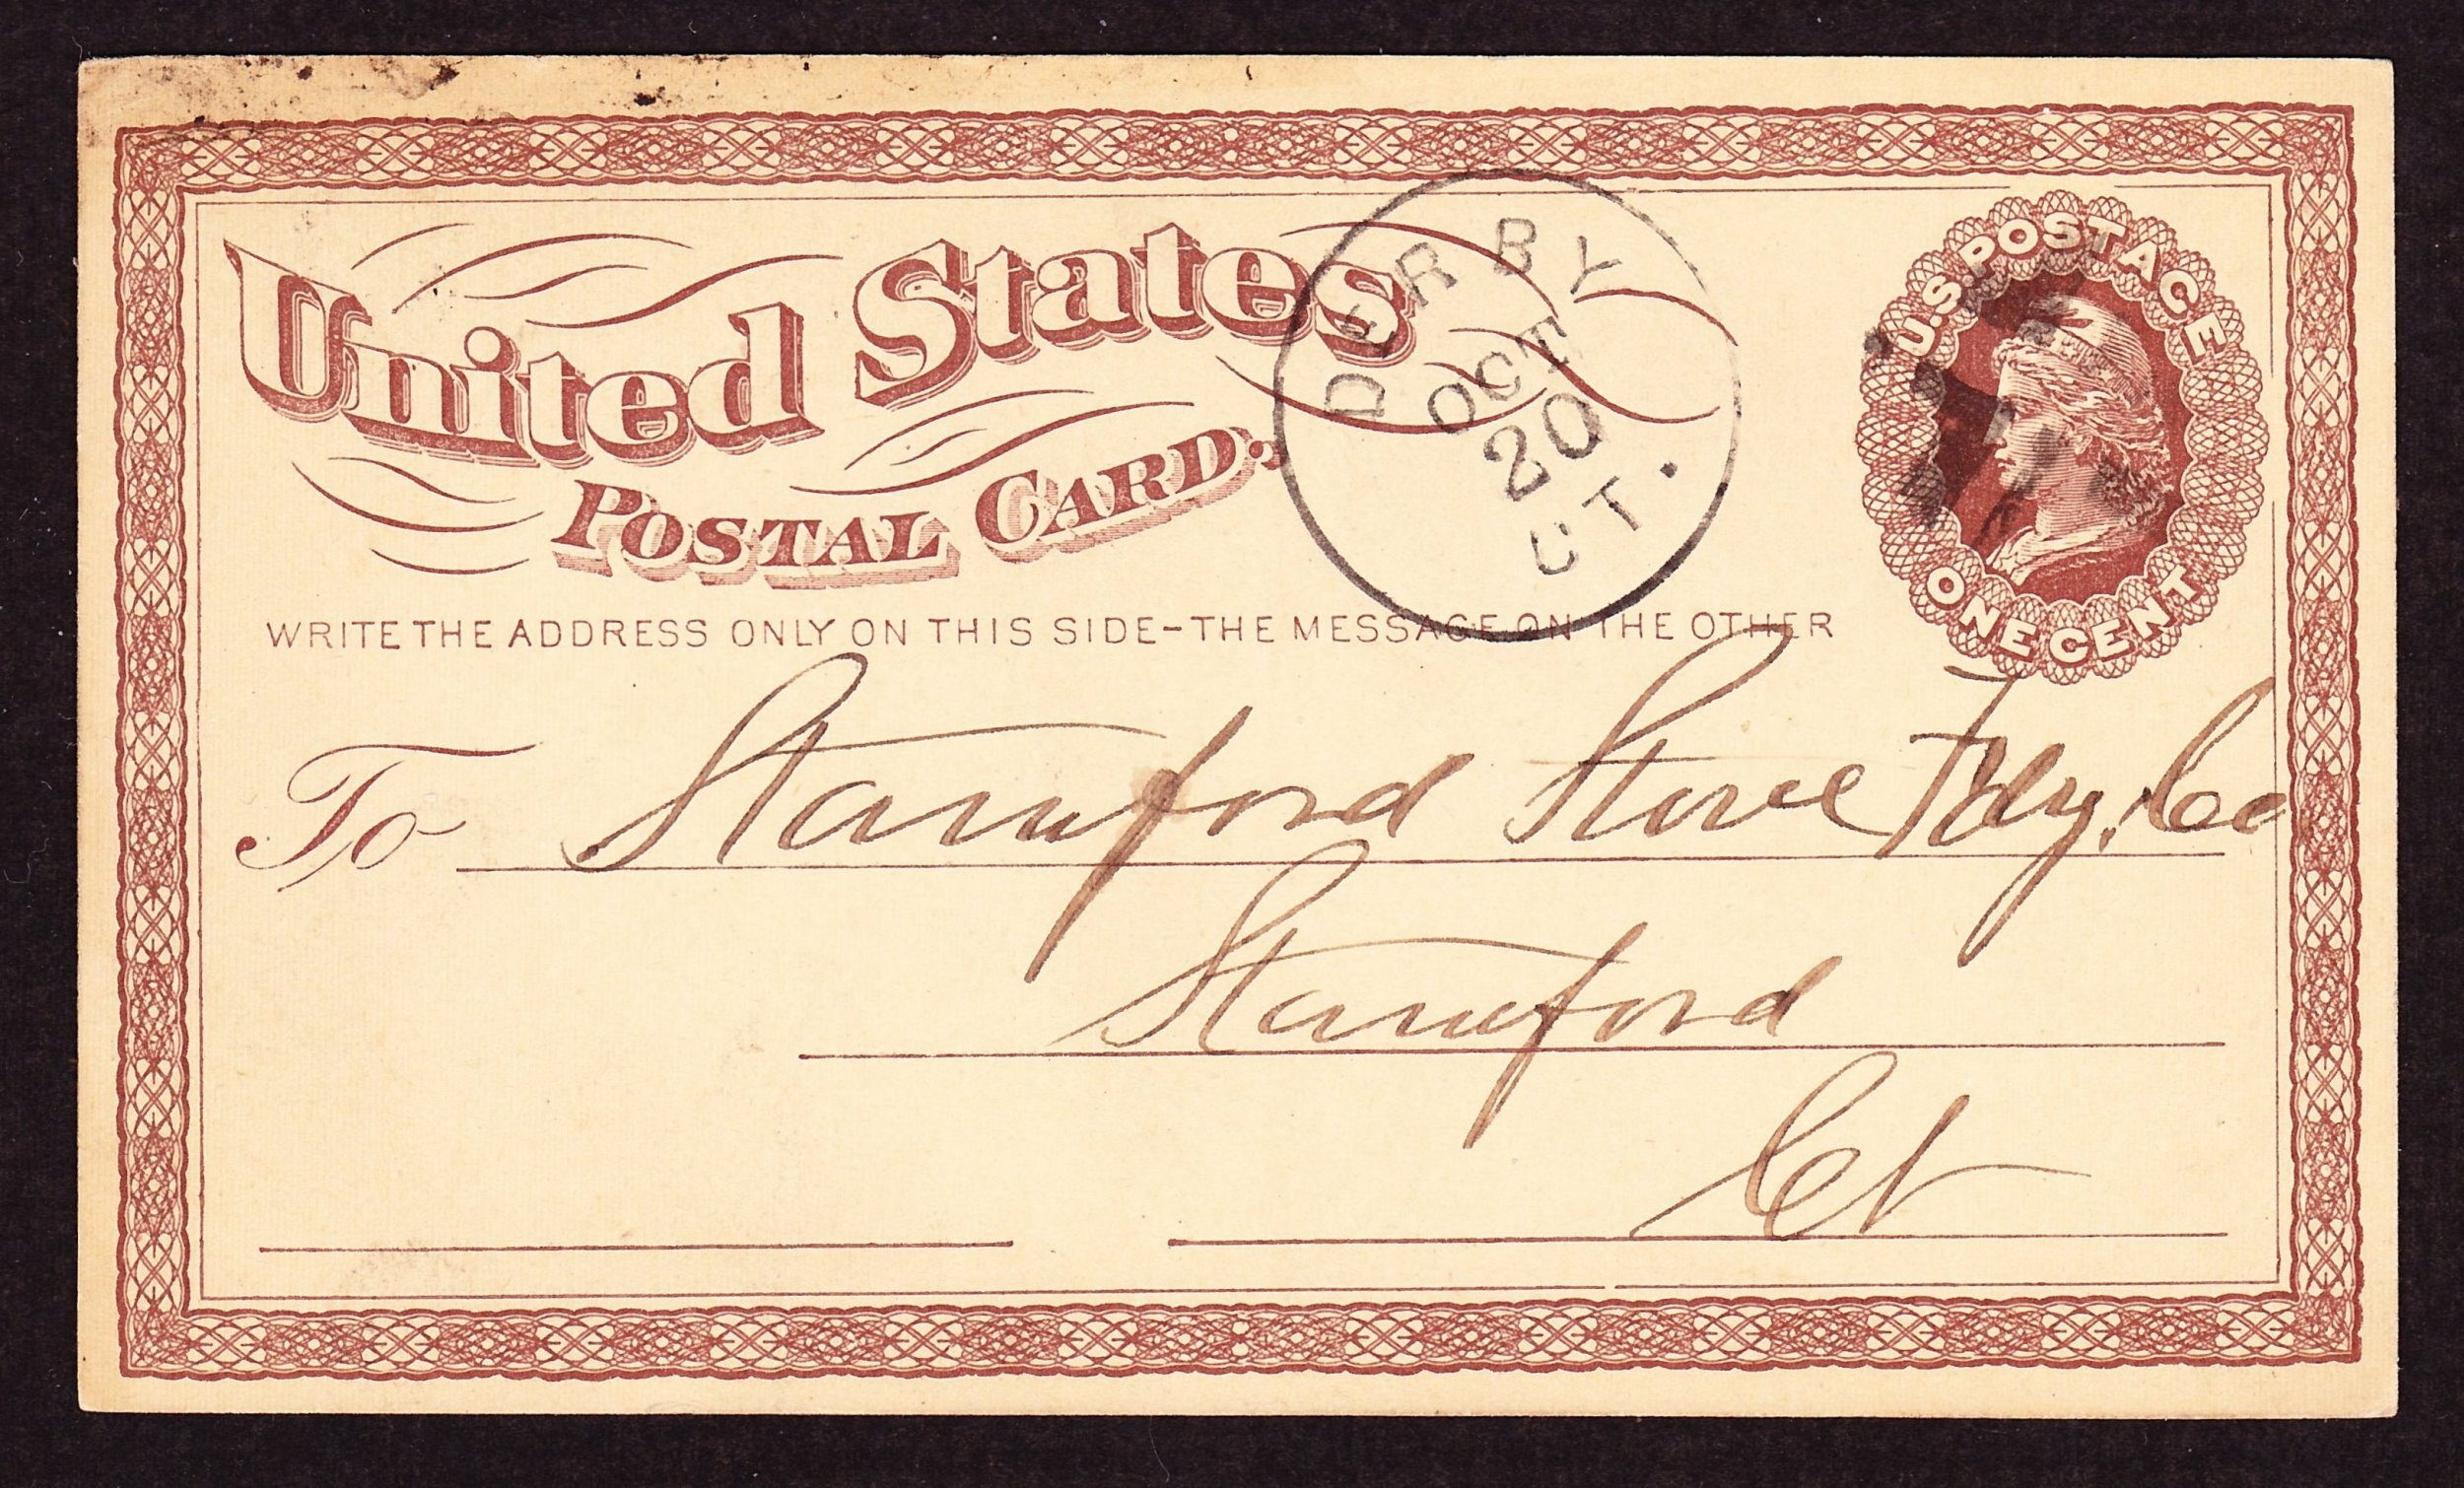 United States
POSTAL CARD.
DERBY
OCT
20
CT.
U.S. POSTAGE
ONE CENT
WRITE THE ADDRESS ONLY ON THIS SIDE-THE MESSAGE ON THE OTHER
To Stamford Stove Fdy. Co
Stamford
Ct